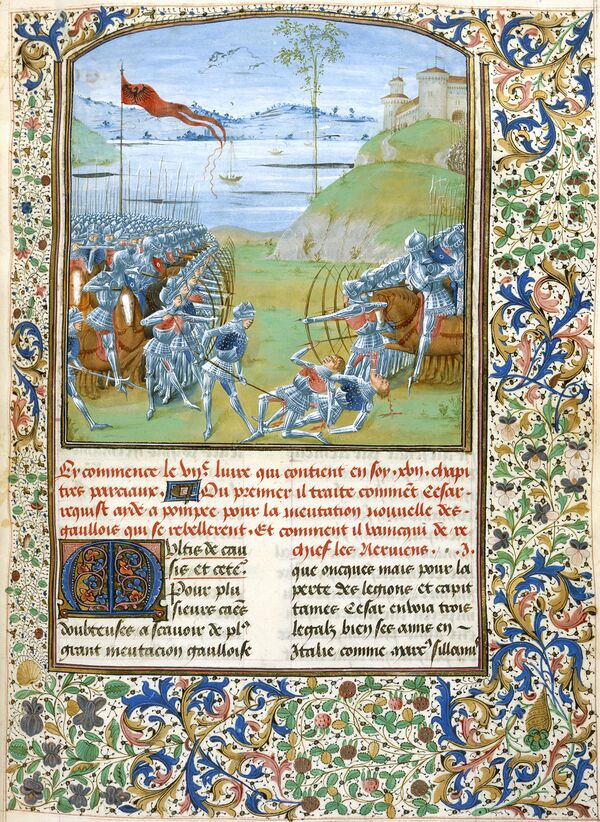 Cy commence le vije livre qui contient en soy .xvii. chapi
tres parciaux Ou premier il traite comment Cesar
requist aide a pompee pour la meutation nouvelle des
gaullois qui se rebellerent. Et comment il vainqui de re
chief les Nerviens. . .
Multis de cau
sis et cete
Pour plu
sieurs caes
doubteuses a scavoir de pls
grant meutacion gaulloise
que oncques mais pour la
perte des legions et capit
taines Cesar envoia trois
legatz bien ses amis en
Italie comme marcs sillanus